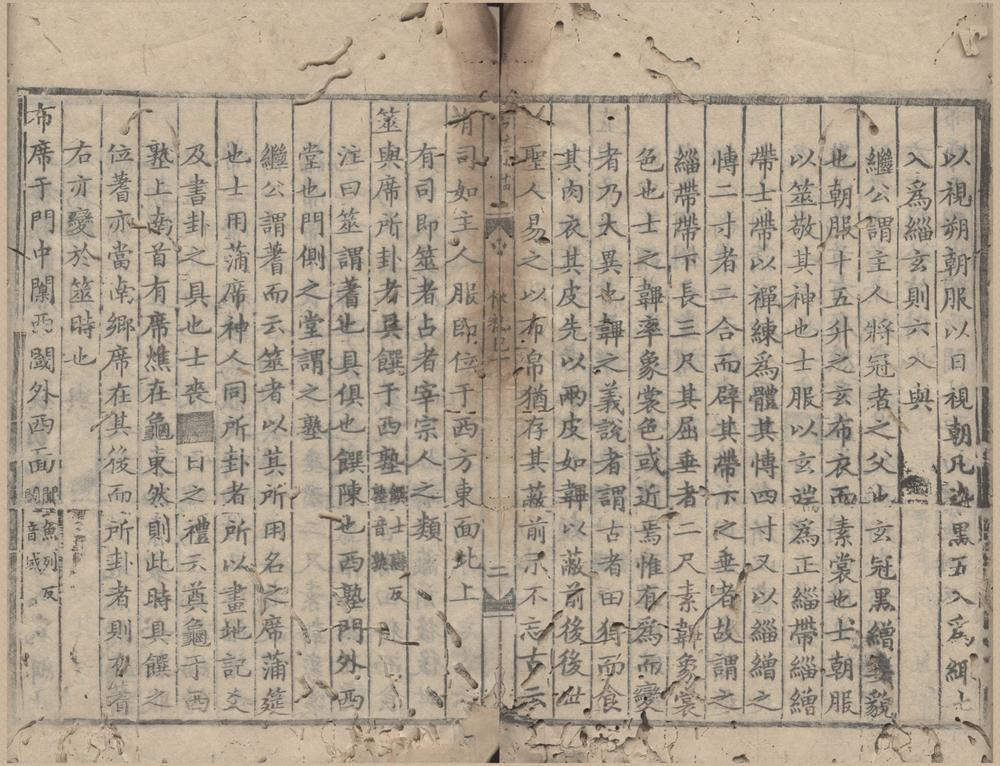 以視朔朝服以日視朝凡染黑五入爲緅七
入爲緇玄則六入與
繼公謂主人將冠者之父也玄冠黑繒委貌
也朝服十五升之玄布衣而素裳也士朝服
以筮敬其神也士服以玄端爲正緇帶緇繒
帶士帶以襌練爲體其博四寸又以緇繒之
博二寸者二合而辟其帶下之垂者故謂之
緇帶帶下長三尺其屈垂者二尺素韠象裳
色也士之韠率象裳色或近焉惟有爲而變
者乃大異也韠之義說者謂古者田狩而食
其肉衣其皮先以兩皮如韠以蔽前後後世
聖人易之以布帛猶存其蔽前示不忘古云
有司如主人服即位于西方東面北上
有司即筮者占者宰宗人之類
筮與席所卦者具饌于西塾饌士戀反塾音孰
注曰筮謂蓍也具俱也饌陳也西塾門外西
堂也門側之堂謂之塾
繼公謂蓍而云筮者以其所用名之席蒲筵
也士用蒲席神人同所卦者所以畫地記爻
及書卦之具也士喪日之禮云奠龜于西
塾上南首有席燋在龜東然則此時具饌之
位蓍亦當南鄉席在其後而所卦者則在蓍
右亦變於筮時也
布席于門中闑西閾外西面闑魚列反閾音域